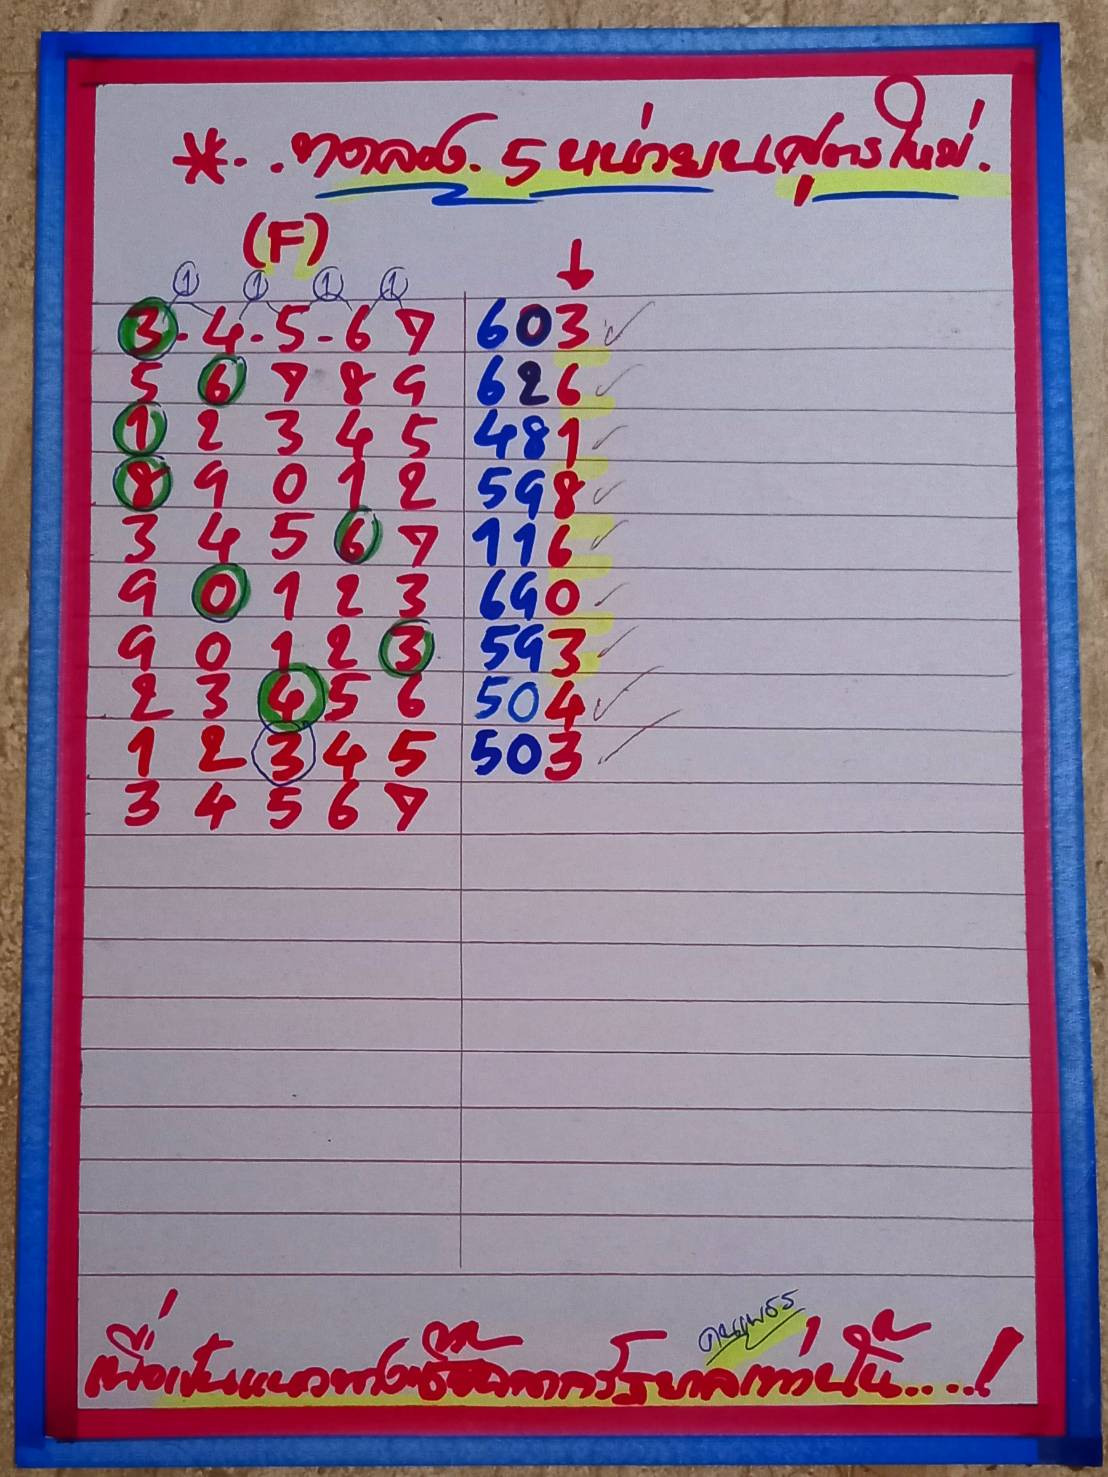 * . . ทดลอง. 5 หน่วยบนสูตรใหม่.
(F)
1 1 1 1
3 - 4 - 5 - 6 7 603
5 6 7 8 9 626
1 2 3 4 5 481
8 9 0 1 2 598
3 4 5 6 7 116
9 0 1 2 3 690
9 0 1 2 3 593
2 3 4 5 6 504
1 2 3 4 5 503
3 4 5 6 7
เพื่อเป็นแนวทางซื้อสลากกรัฐบาลเท่านั้น....!